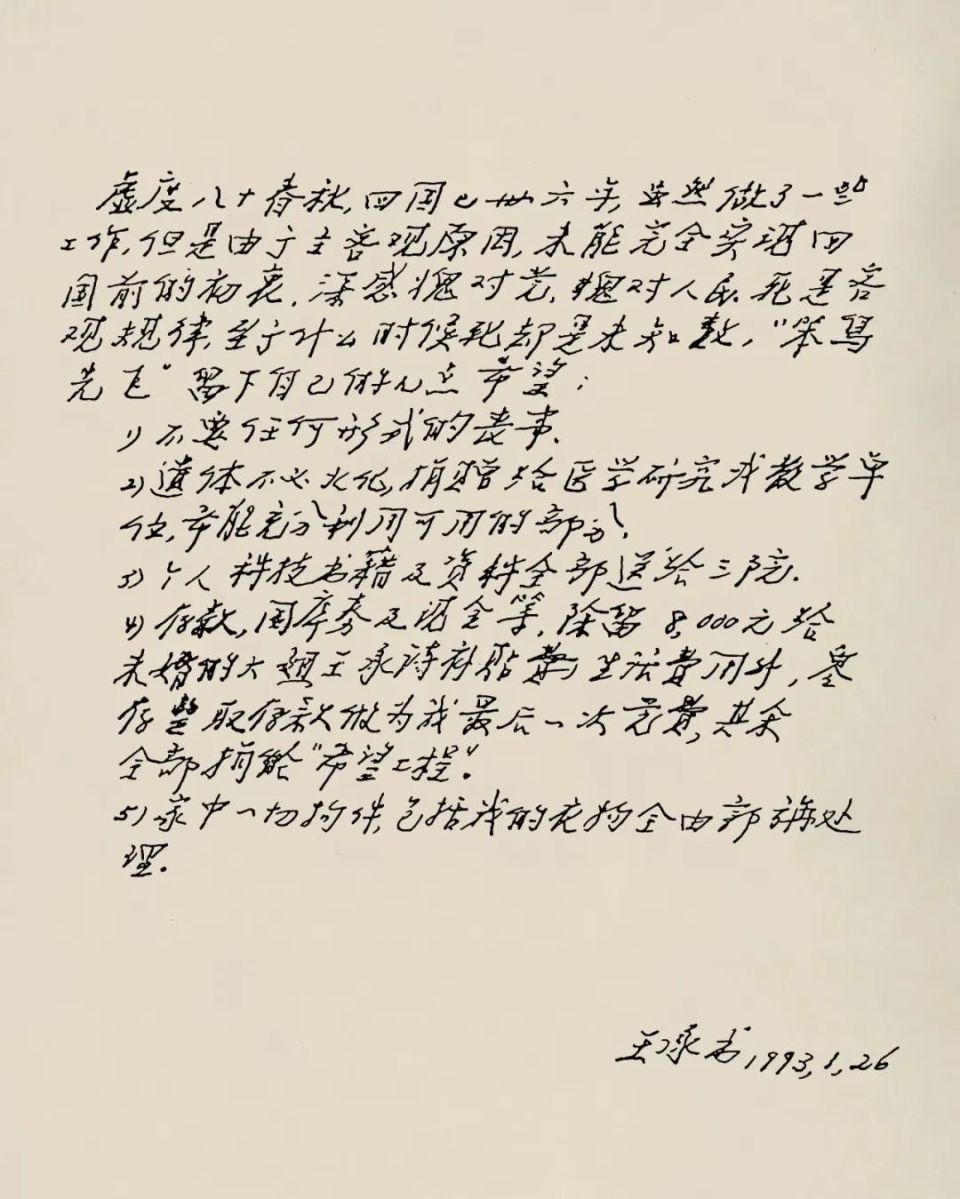 虚度八十春秋,回国已卅六年,虽然做了一些
工作,但是由于主客观原因,未能完全实现回
国前的初衷,深感愧对党,愧对人民.死是客
观规律,至于什么时候死却是未知数,"笨鸟
先飞"留下自己的几点希望:
1)不要任何形式的丧事.
2)遗体不必火化,捐赠给医学研究或教学单
位,希能充分利用可用的部分.
3)个人科技书籍及资料全部送给三院.
4)存款,国库券及现金等,除留8,000元给
未婚的大姐王承诗补贴费生活费用外,
存整取存款做为我最后一次党费,其余
全部捐给"希望工程".
5)家中一切物件,包括我的衣物全由郭 处
理.
王承书 1993,1,26